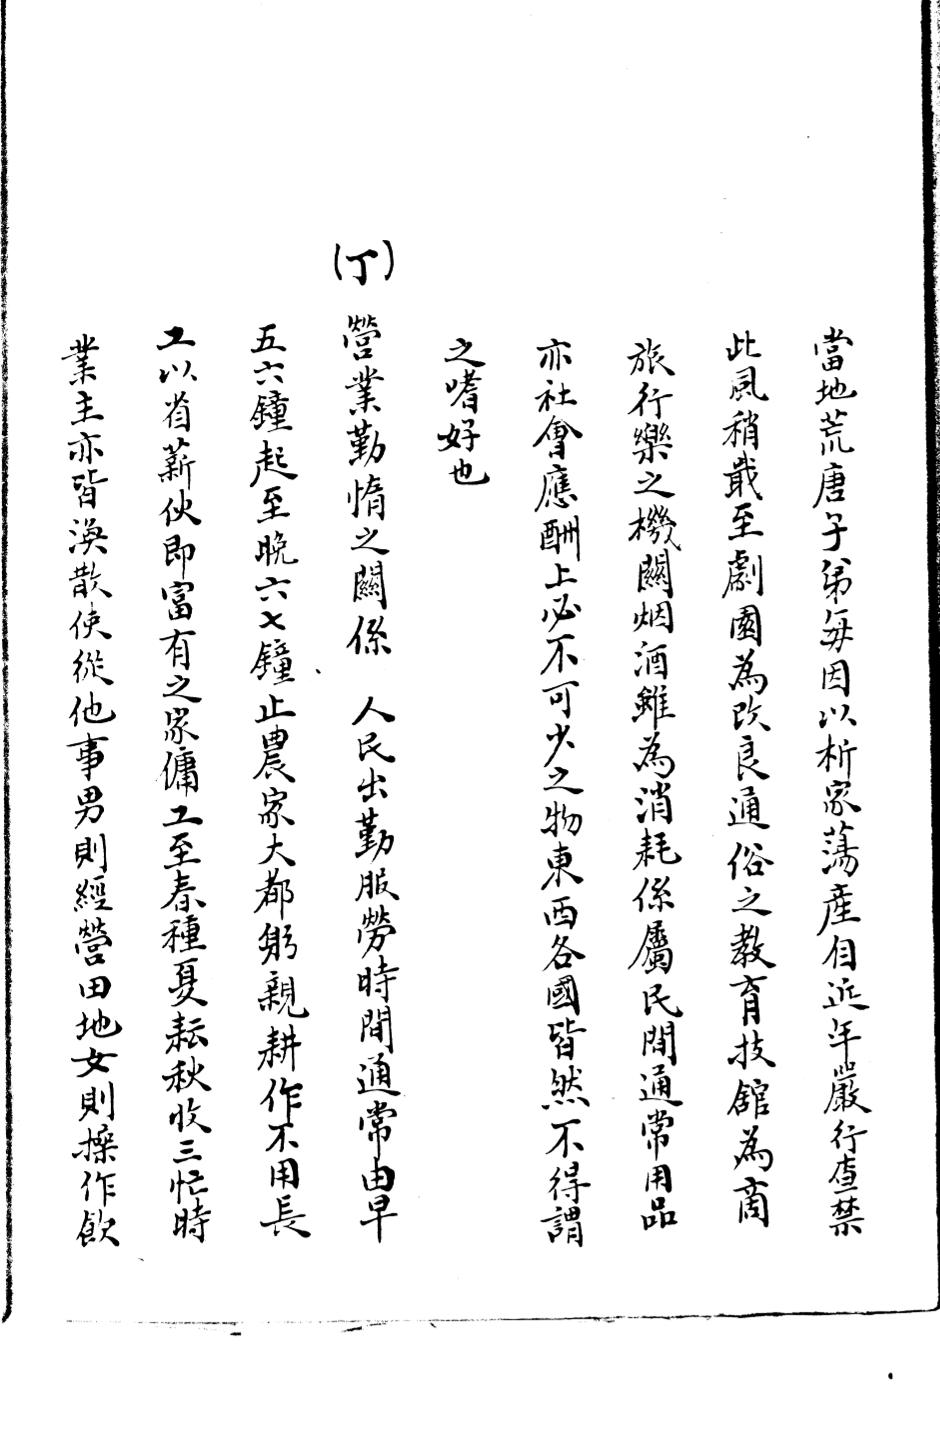 當地荒唐子弟每因以析家蕩產自近年嚴行查禁
此風稍戢至劇園為改良通俗之教育技館為商
旅行樂之機關烟酒雖為消耗係屬民間通常用品
亦社會應酬上必不可少之物東西各國皆然不得謂
之嗜好也
(丁)營業勤惰之關係 人民出勤服勞時間通常由早
五六鐘起至晚六七鐘止農家大都躬親耕作不用長
工以省薪伙即富有之家傭工至春種夏耘秋收三忙時
業主亦皆渙散使從他事男則經營田地女則操作飲